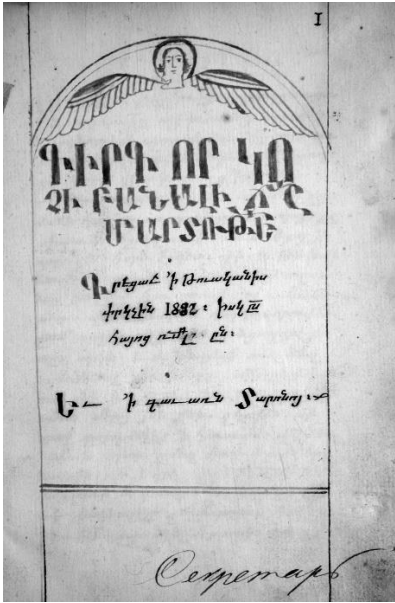 I
ԳԻՐԳ ՈՐ ԿՈ
ՉԻ ԲԱՆԱԼԻ ՃՇ
ՄԱՐՏՈՒԹԵ
Գրէցաւ 'ի Թուականիս
փրկչին 1882 ։ իսկ
հայոց
Եւ 'ի գաւառն Տարօնոյ ։
Секретарь